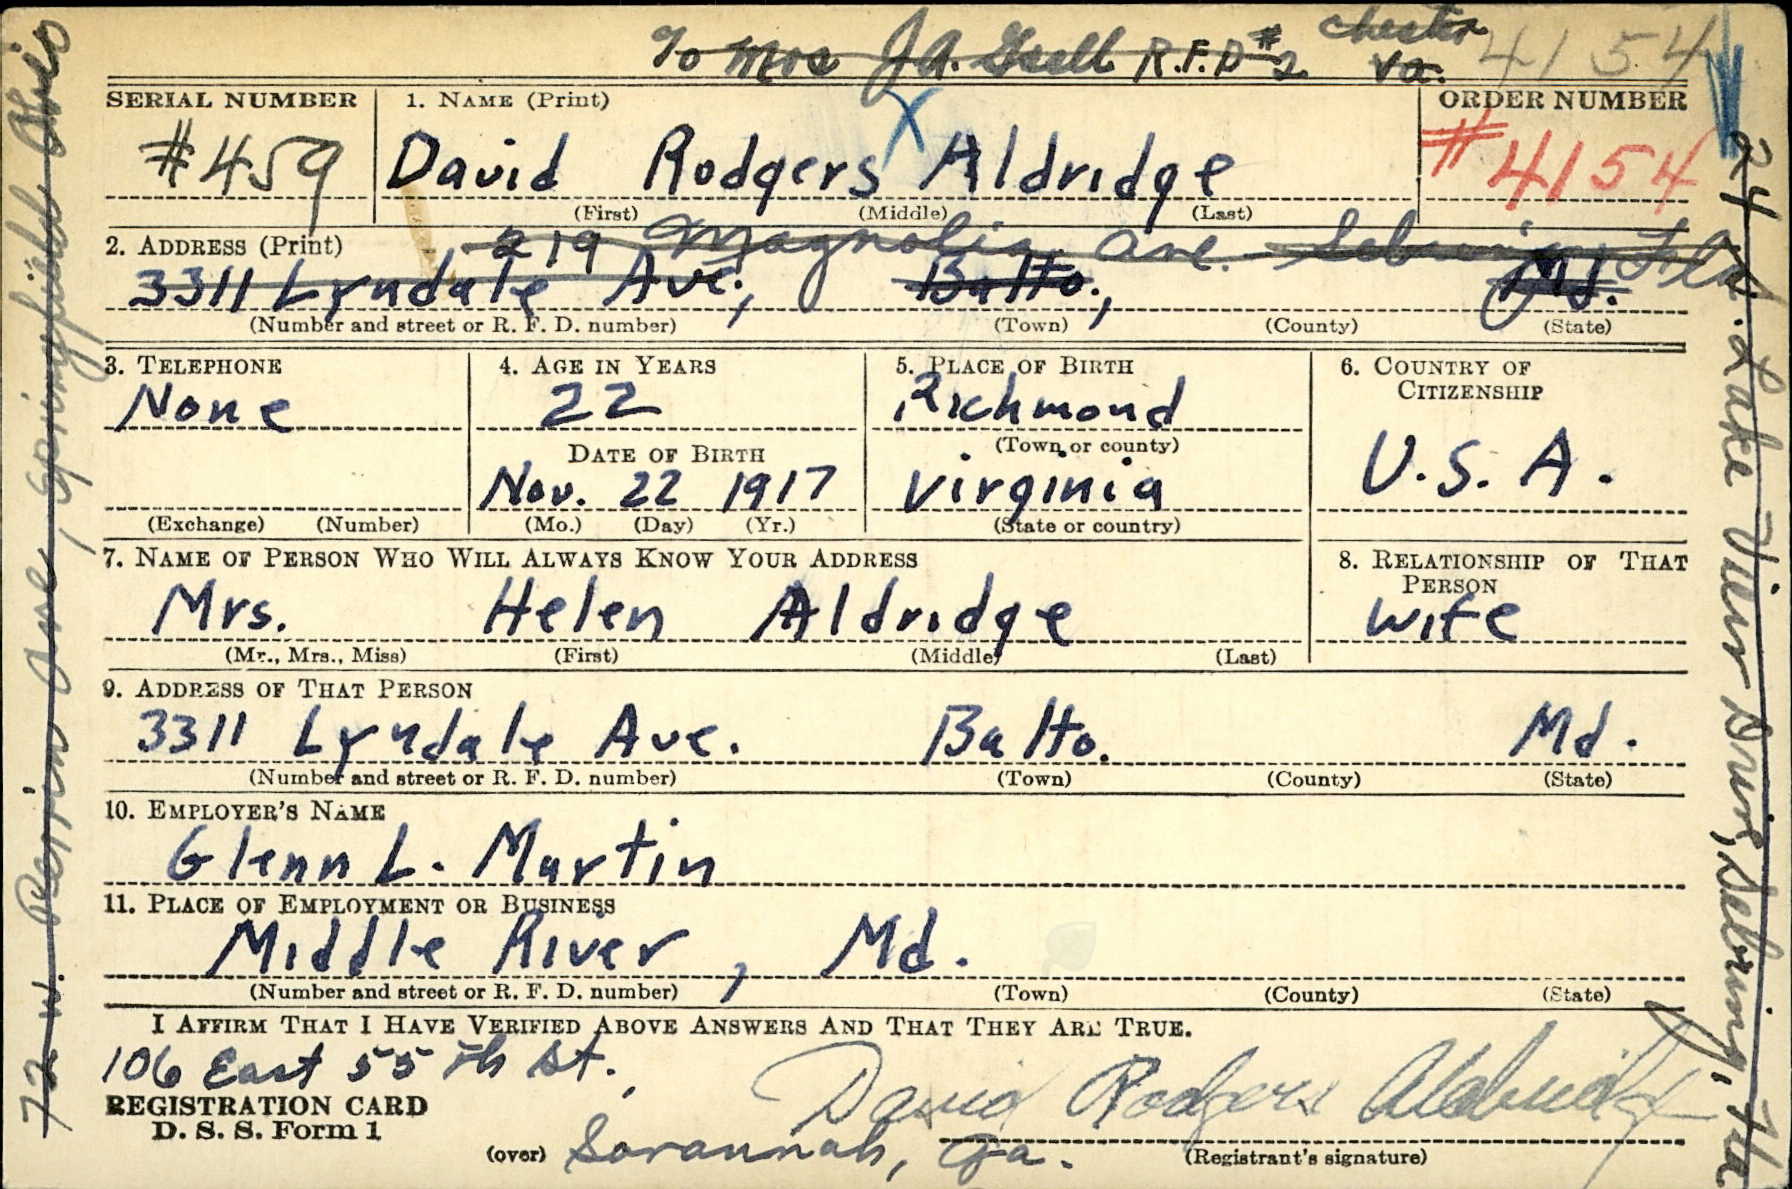 To Mrs J.A. Gsell R.F.D #2 Chester Va. 4154
SERIAL NUMBER 1. NAME (Print) ORDER NUMBER
#459 David Rodgers Aldridge #4154
(First) (Middle) (Last)
2. ADDRESS (Print) 219 Magnolia Ave. Sebring Fla
3311 Lyndale Ave., Balto., Md.
(Number and street or R. F. D. number) (Town) (County) (State)
3. TELEPHONE 4. AGE IN YEARS 5. PLACE OF BIRTH 6. COUNTRY OF CITIZENSHIP
None 22 Richmond
DATE OF BIRTH (Town or county)
Nov. 22 1917 Virginia U.S.A.
(Exchange) (Number) (Mo.) (Day) (Yr.) (State or country)
7. NAME OF PERSON WHO WILL ALWAYS KNOW YOUR ADDRESS 8. RELATIONSHIP OF THAT PERSON
Mrs. Helen Aldridge Wife
(Mr., Mrs., Miss) (First) (Middle) (Last)
9. ADDRESS OF THAT PERSON
3311 Lyndale Ave. Balto. Md.
(Number and street or R. F. D. number) (Town) (County) (State)
10. EMPLOYER'S NAME
Glenn L. Martin
11. PLACE OF EMPLOYMENT OR BUSINESS
Middle River, Md.
(Number and street or R. F. D. number) (Town) (County) (State)
I AFFIRM THAT I HAVE VERIFIED ABOVE ANSWERS AND THAT THEY ARE TRUE.
106 East 55th St.,
REGISTRATION CARD David Rodgers Aldridge
D. S. S. Form 1
(over) Savannah, Ga. (Registrant's signature)
72 W. Perrin Ave, Springfield Ohio
244 Lake View Drive, Sebring, Fla